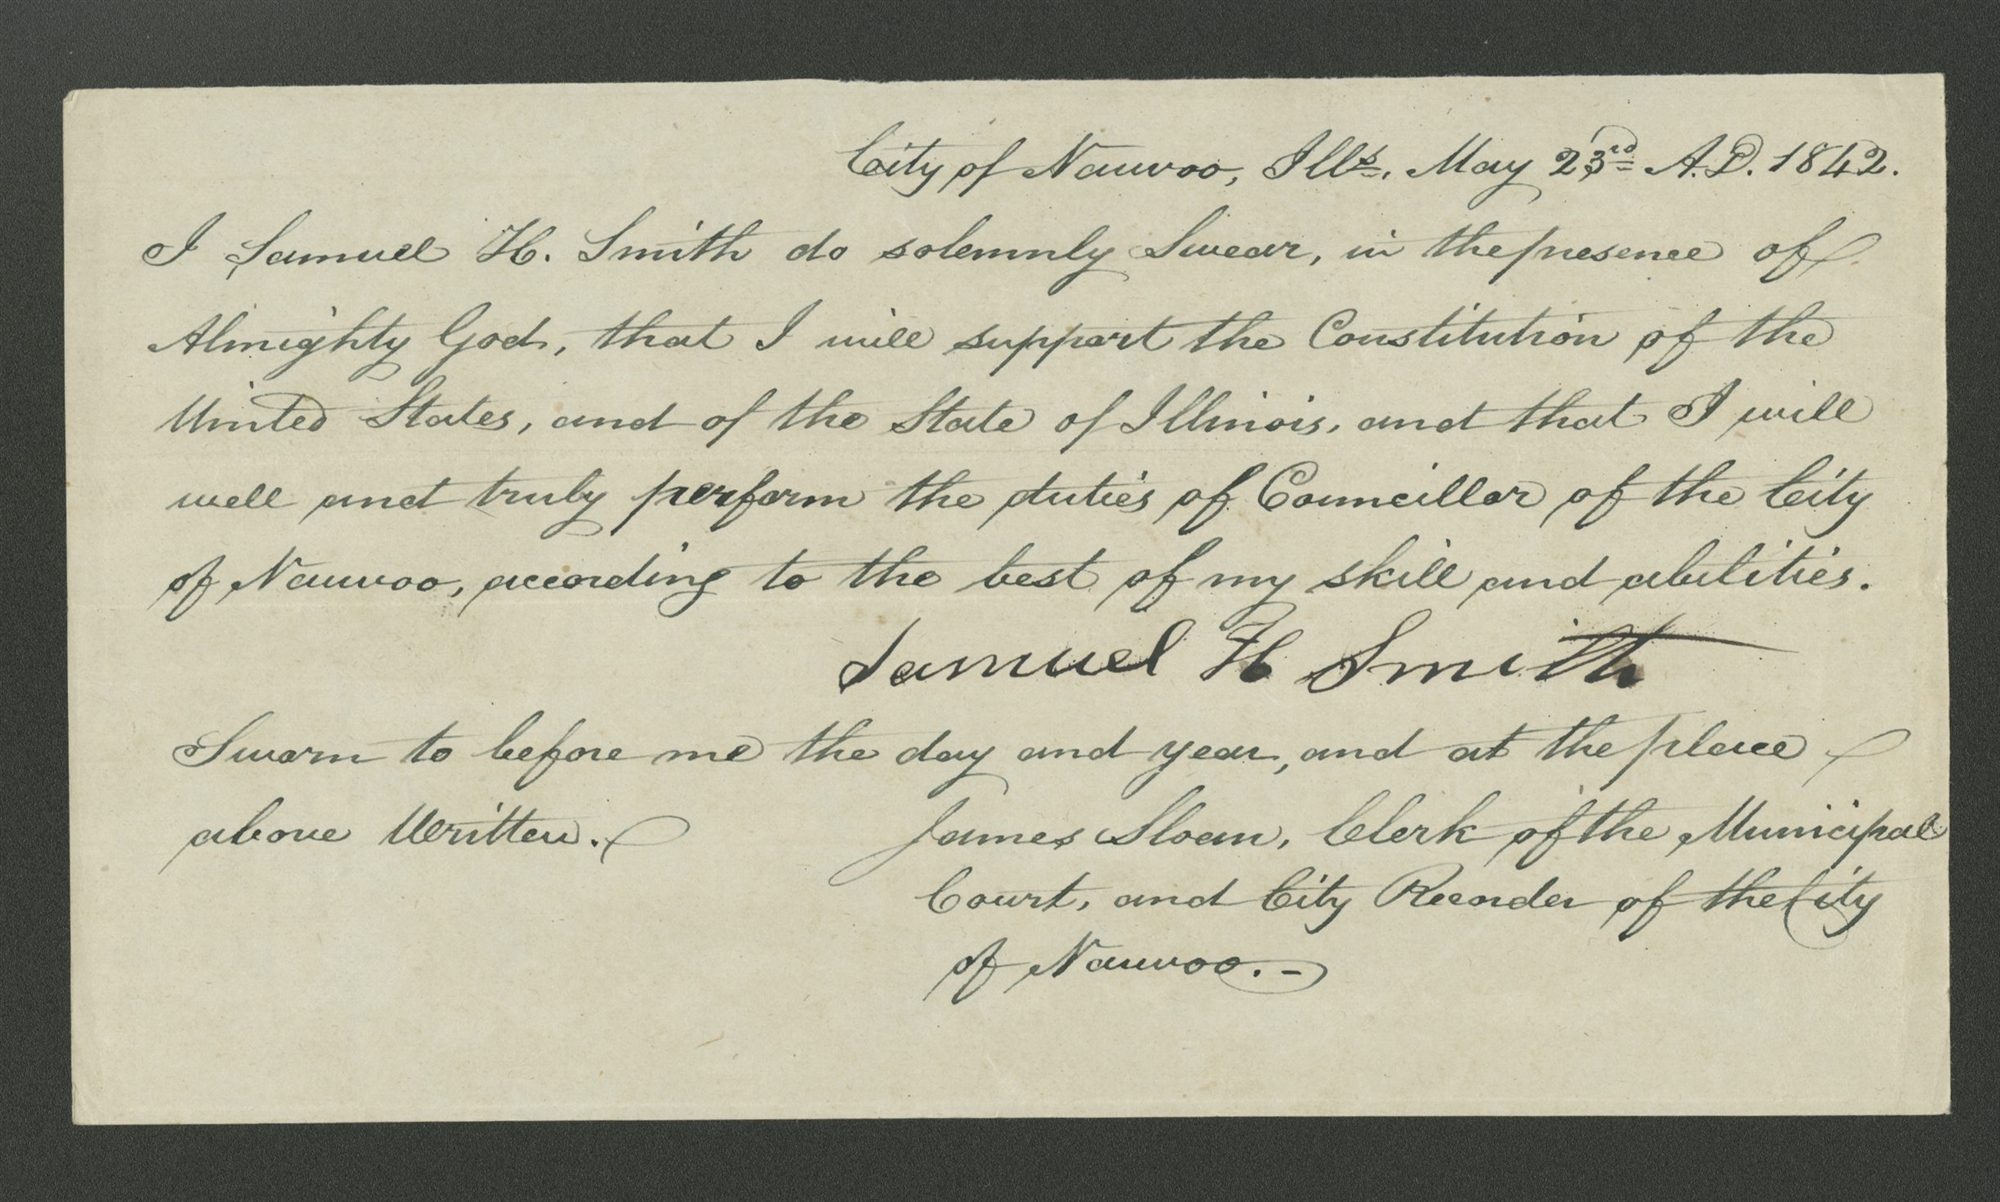 City of Nauvoo, Ills. May 23rd A.D. 1842.
I Samuel H. Smith do solemnly Swear, in the presence of
Almighty God, that I will support the Constitution of the
United States, and of the State of Illinois, and that I will
well and truly perform the duties of Councillor of the City
of Nauvoo, according to the best of my skill and abilities.
Samuel H Smith
Sworn to before me the day and year, and at the place
above Written.
James Sloan, Clerk of the Municipal
Court, and City Recorder of the City
of Nauvoo. -